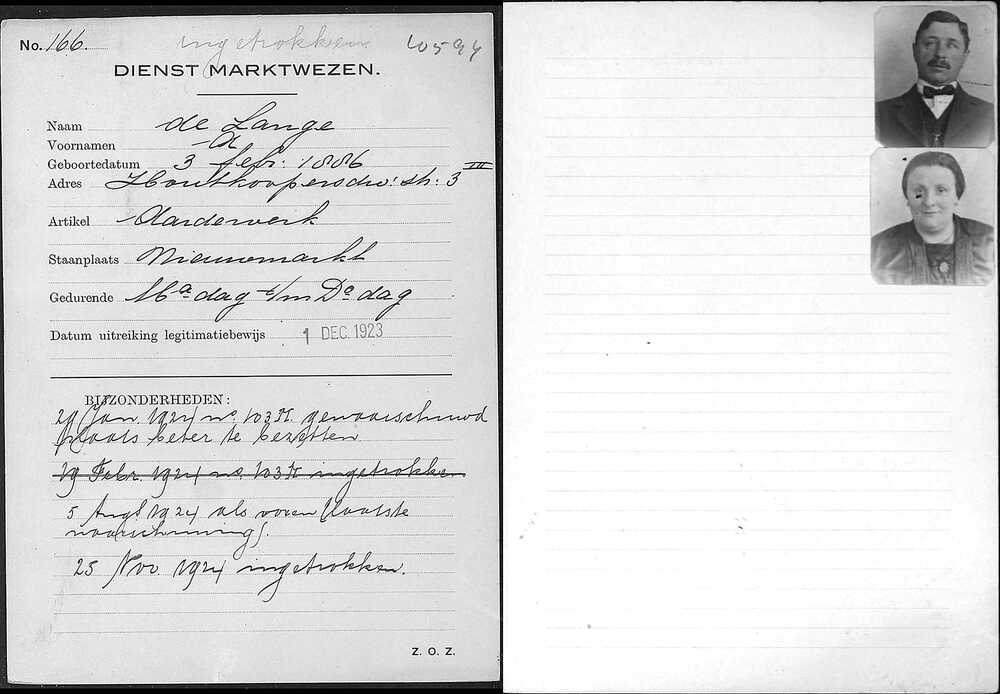 No. 166. ingetrokken
DIENST MARKTWEZEN.
Naam de Lange
Voornamen A
Geboortedatum 3 febr: 1886
Adres Houtkoopersdw: str: 3 III
Artikel Aardewerk
Staanplaats Nieuwmarkt
Gedurende Ma dag t/m Do dag
Datum uitreiking legitimatiebewijs 1 DEC. 1923
BIJZONDERHEDEN:
29 Jan. 1924 no. 103 H. gewaarschuwd
plaats beter te bezetten
19 Febr. 1924 no. 103 H ingetrokken
5 Augt 1924 als voren (laatste
waarschuwing).
25 Nov. 1924 ingetrokken.
Z. O. Z.